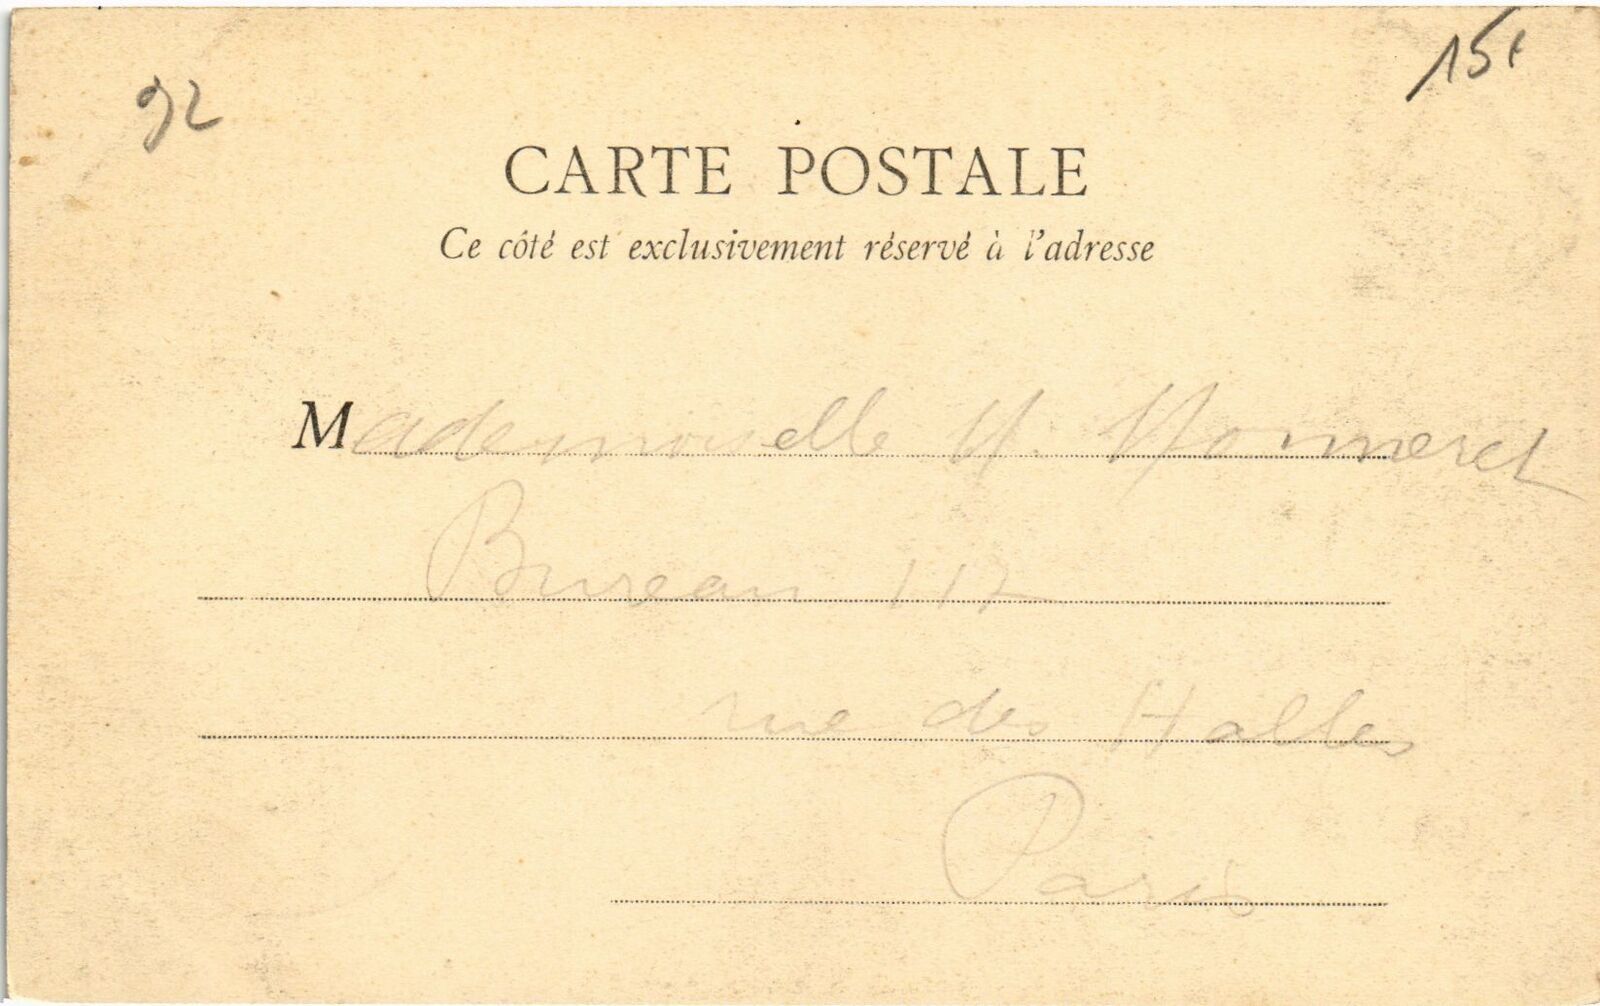 92
15€
CARTE POSTALE
Ce côté est exclusivement réservé à l'adresse
Mademoiselle M. Monneret
Bureau 117
rue des Halles
Paris